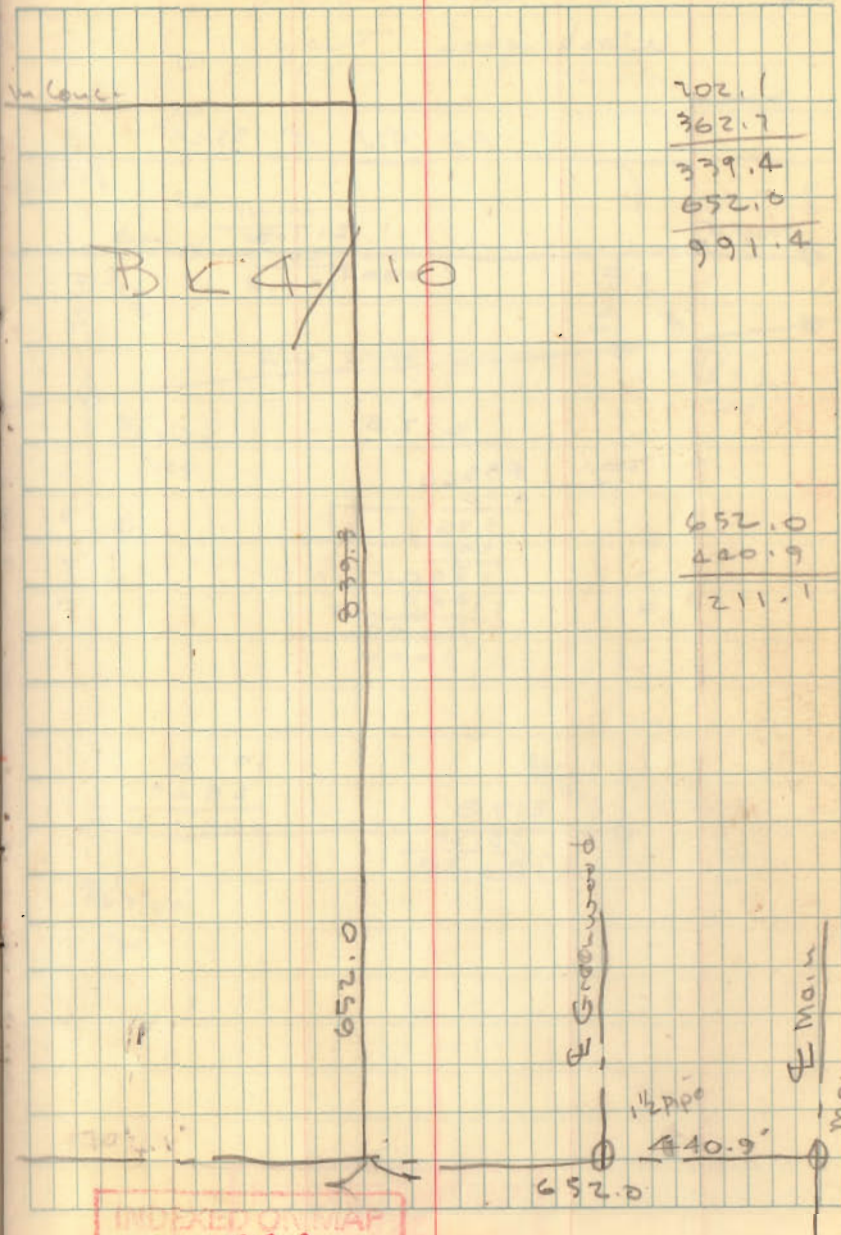 in Conc.
702.1
362.7
339.4
652.0
991.4
BK 4/10
839.3
652.0
440.9
211.1
652.0
℄ Greenwood
℄ Main
1½ pipe
440.9'
652.0
INDEXED ON MAP